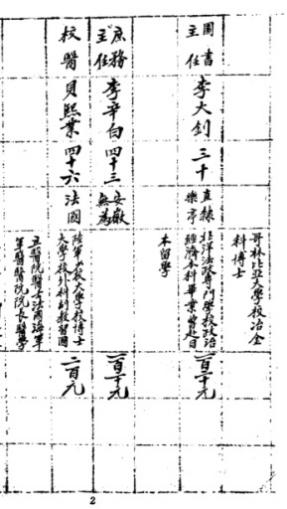 哥林比亞大學校冶金
科博士
圖書
主任
李大釗
三十
直隸
樂亭
北洋法政專門學校政治
經濟科畢業曾赴日
本留學
一百二十元
庶務
主任
李辛白
四十三
安徽
無為
一百二十元
校醫
貝熙業
四十六
法國
大學校博士
大學校外科副教習國
立醫院醫士法國海軍
軍醫醫院院長醫學
二百元
2